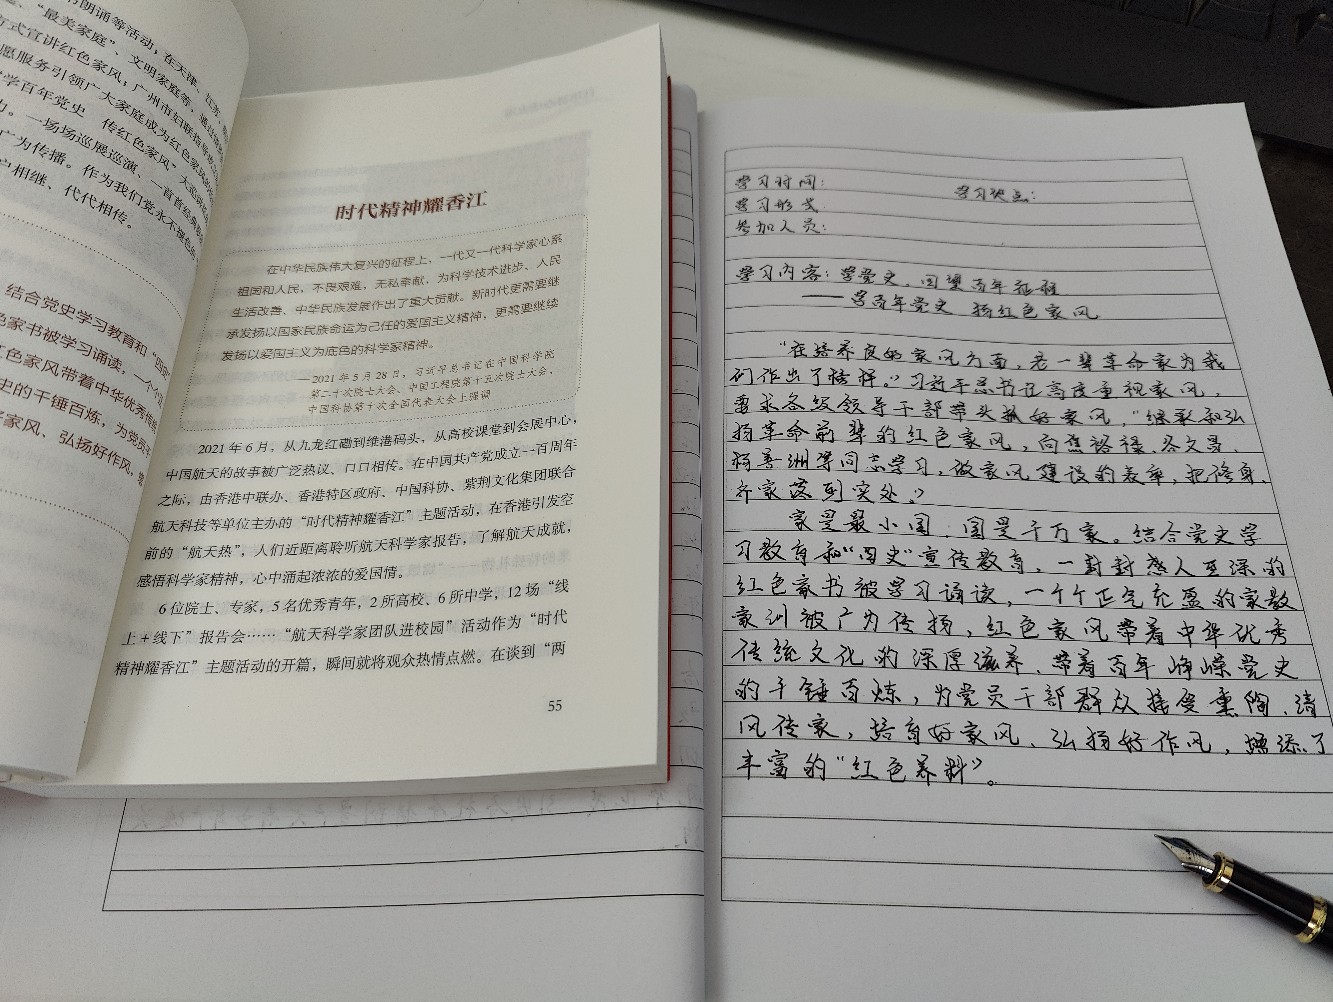 书朗诵等活动，在天津、江苏、
、“最美家庭”、文明家庭等，通过
方式宣讲红色家风；广州市妇联指导
愿服务引领广大家庭成为红色家风的
学百年党史　传红色家风”大
力。一场场巡展巡演、一首首经典
广为传播。作为我们党永不褪色
户相继、代代相传。
结合党史学习教育和“四史
色家书被学习诵读，一个个
红色家风带着中华优秀传统
史的千锤百炼，为党员
好家风、弘扬好作风，
时代精神耀香江
在中华民族伟大复兴的征程上，一代又一代科学家心系
祖国和人民，不畏艰难，无私奉献，为科学技术进步、人民
生活改善、中华民族发展作出了重大贡献。新时代更需要继
承发扬以国家民族命运为己任的爱国主义精神，更需要继续
发扬以爱国主义为底色的科学家精神。
——2021年5月28日，习近平总书记在中国科学院
第二十次院士大会、中国工程院第十五次院士大会、
中国科协第十次全国代表大会上强调
2021年6月，从九龙红磡到维港码头，从高校课堂到会展中心，
中国航天的故事被广泛热议、口口相传。在中国共产党成立一百周年
之际，由香港中联办、香港特区政府、中国科协、紫荆文化集团联合
航天科技等单位主办的“时代精神耀香江”主题活动，在香港引发空
前的“航天热”，人们近距离聆听航天科学家报告，了解航天成就，
感悟科学家精神，心中涌起浓浓的爱国情。
6位院士、专家，5名优秀青年，2所高校、6所中学，12场“线
上+线下”报告会……“航天科学家团队进校园”活动作为“时代
精神耀香江”主题活动的开篇，瞬间就将观众热情点燃。在谈到“两
55
学习时间：　学习地点：
学习形式
参加人员：
学习内容：学党史，回望百年征程
——学百年党史　扬红色家风
“在培养良好家风方面，老一辈革命家为我
们作出了榜样。”习近平总书记高度重视家风，
要求各级领导干部带头抓好家风，“继承和弘
扬革命前辈的红色家风，向焦裕禄、谷文昌、
杨善洲等同志学习，做家风建设的表率，把修身、
齐家落到实处。”
家是最小国，国是千万家。结合党史学
习教育和“四史”宣传教育，一封封感人至深的
红色家书被学习诵读，一个个正气充盈的家教
家训被广为传扬，红色家风带着中华优秀
传统文化的深厚滋养、带着百年峥嵘党史
的千锤百炼，为党员干部群众接受熏陶、清
风传家，培育好家风、弘扬好作风，增添了
丰富的“红色养料”。